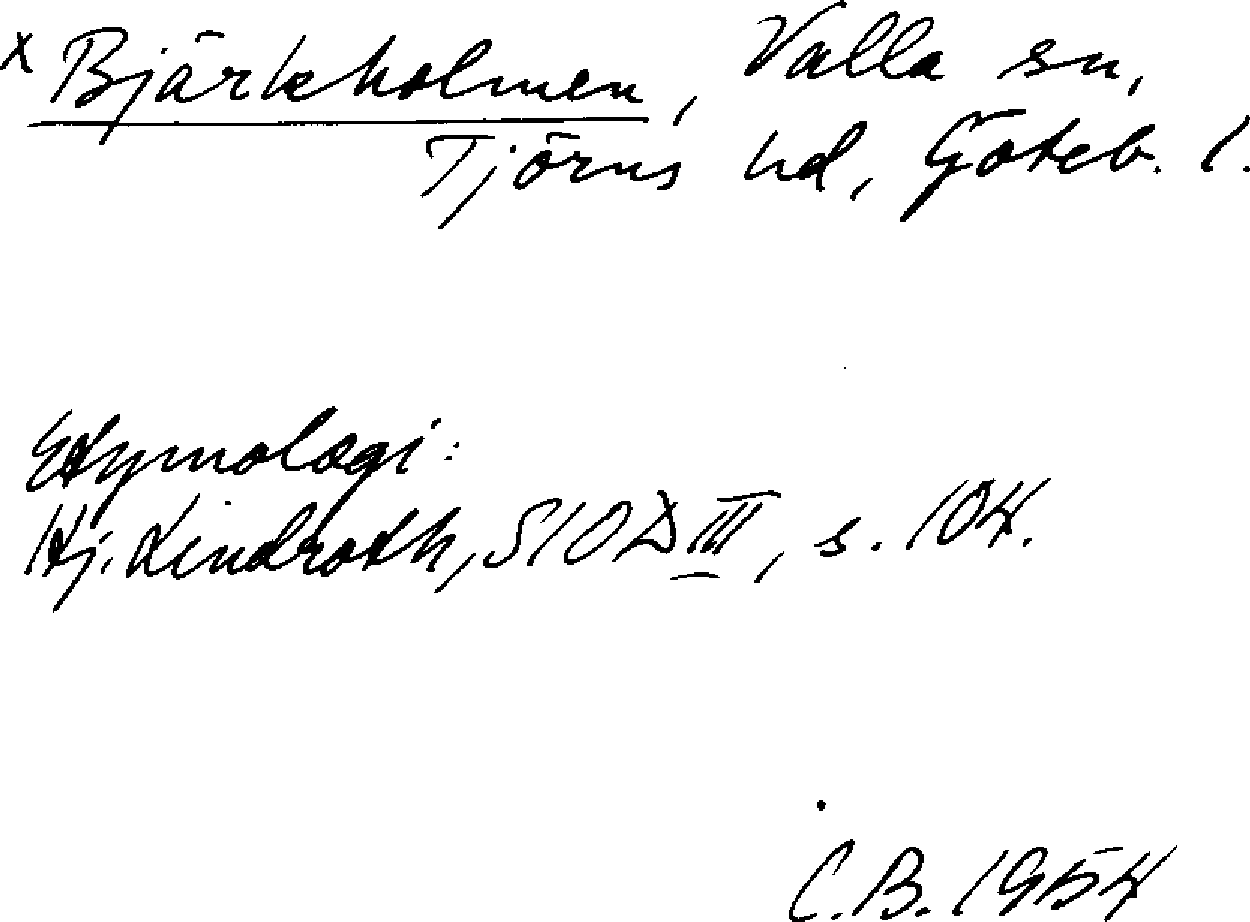 x Bjärkholmen, Valla sn,
Tjörns hd, Göteb. l.
Etymologi:
Hj. Lindroth, SIOD III, s. 104.
C.B. 1954